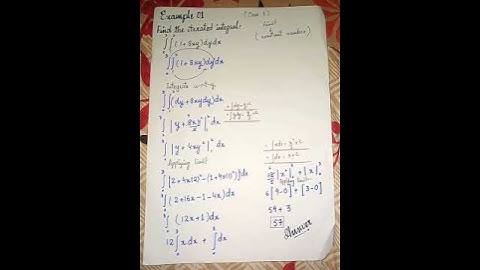 Example 01
(Case 1)
Find the iterated integral.
limit
(constant number)
∫₀³∫₁²(1+8xy)dydx
∫₀³∫₁²(1+8xy)dydx
Integrate w.r.t-y
∫₀³∫₁²(dy+8xydy)dx
∫₀³|y+8xy²/2|₁²dx
∫₀³|y+4xy²|₁²dx
Applying limit
∫₀³[2+4x(2)²-(1+4x(1)²)]dx
∫₀³(2+16x-1-4x)dx
∫₀³(12x+1)dx
12∫₀³xdx+∫₀³dx
Apply limit
6[9-0]+[3-0]
54+3
57
Answer